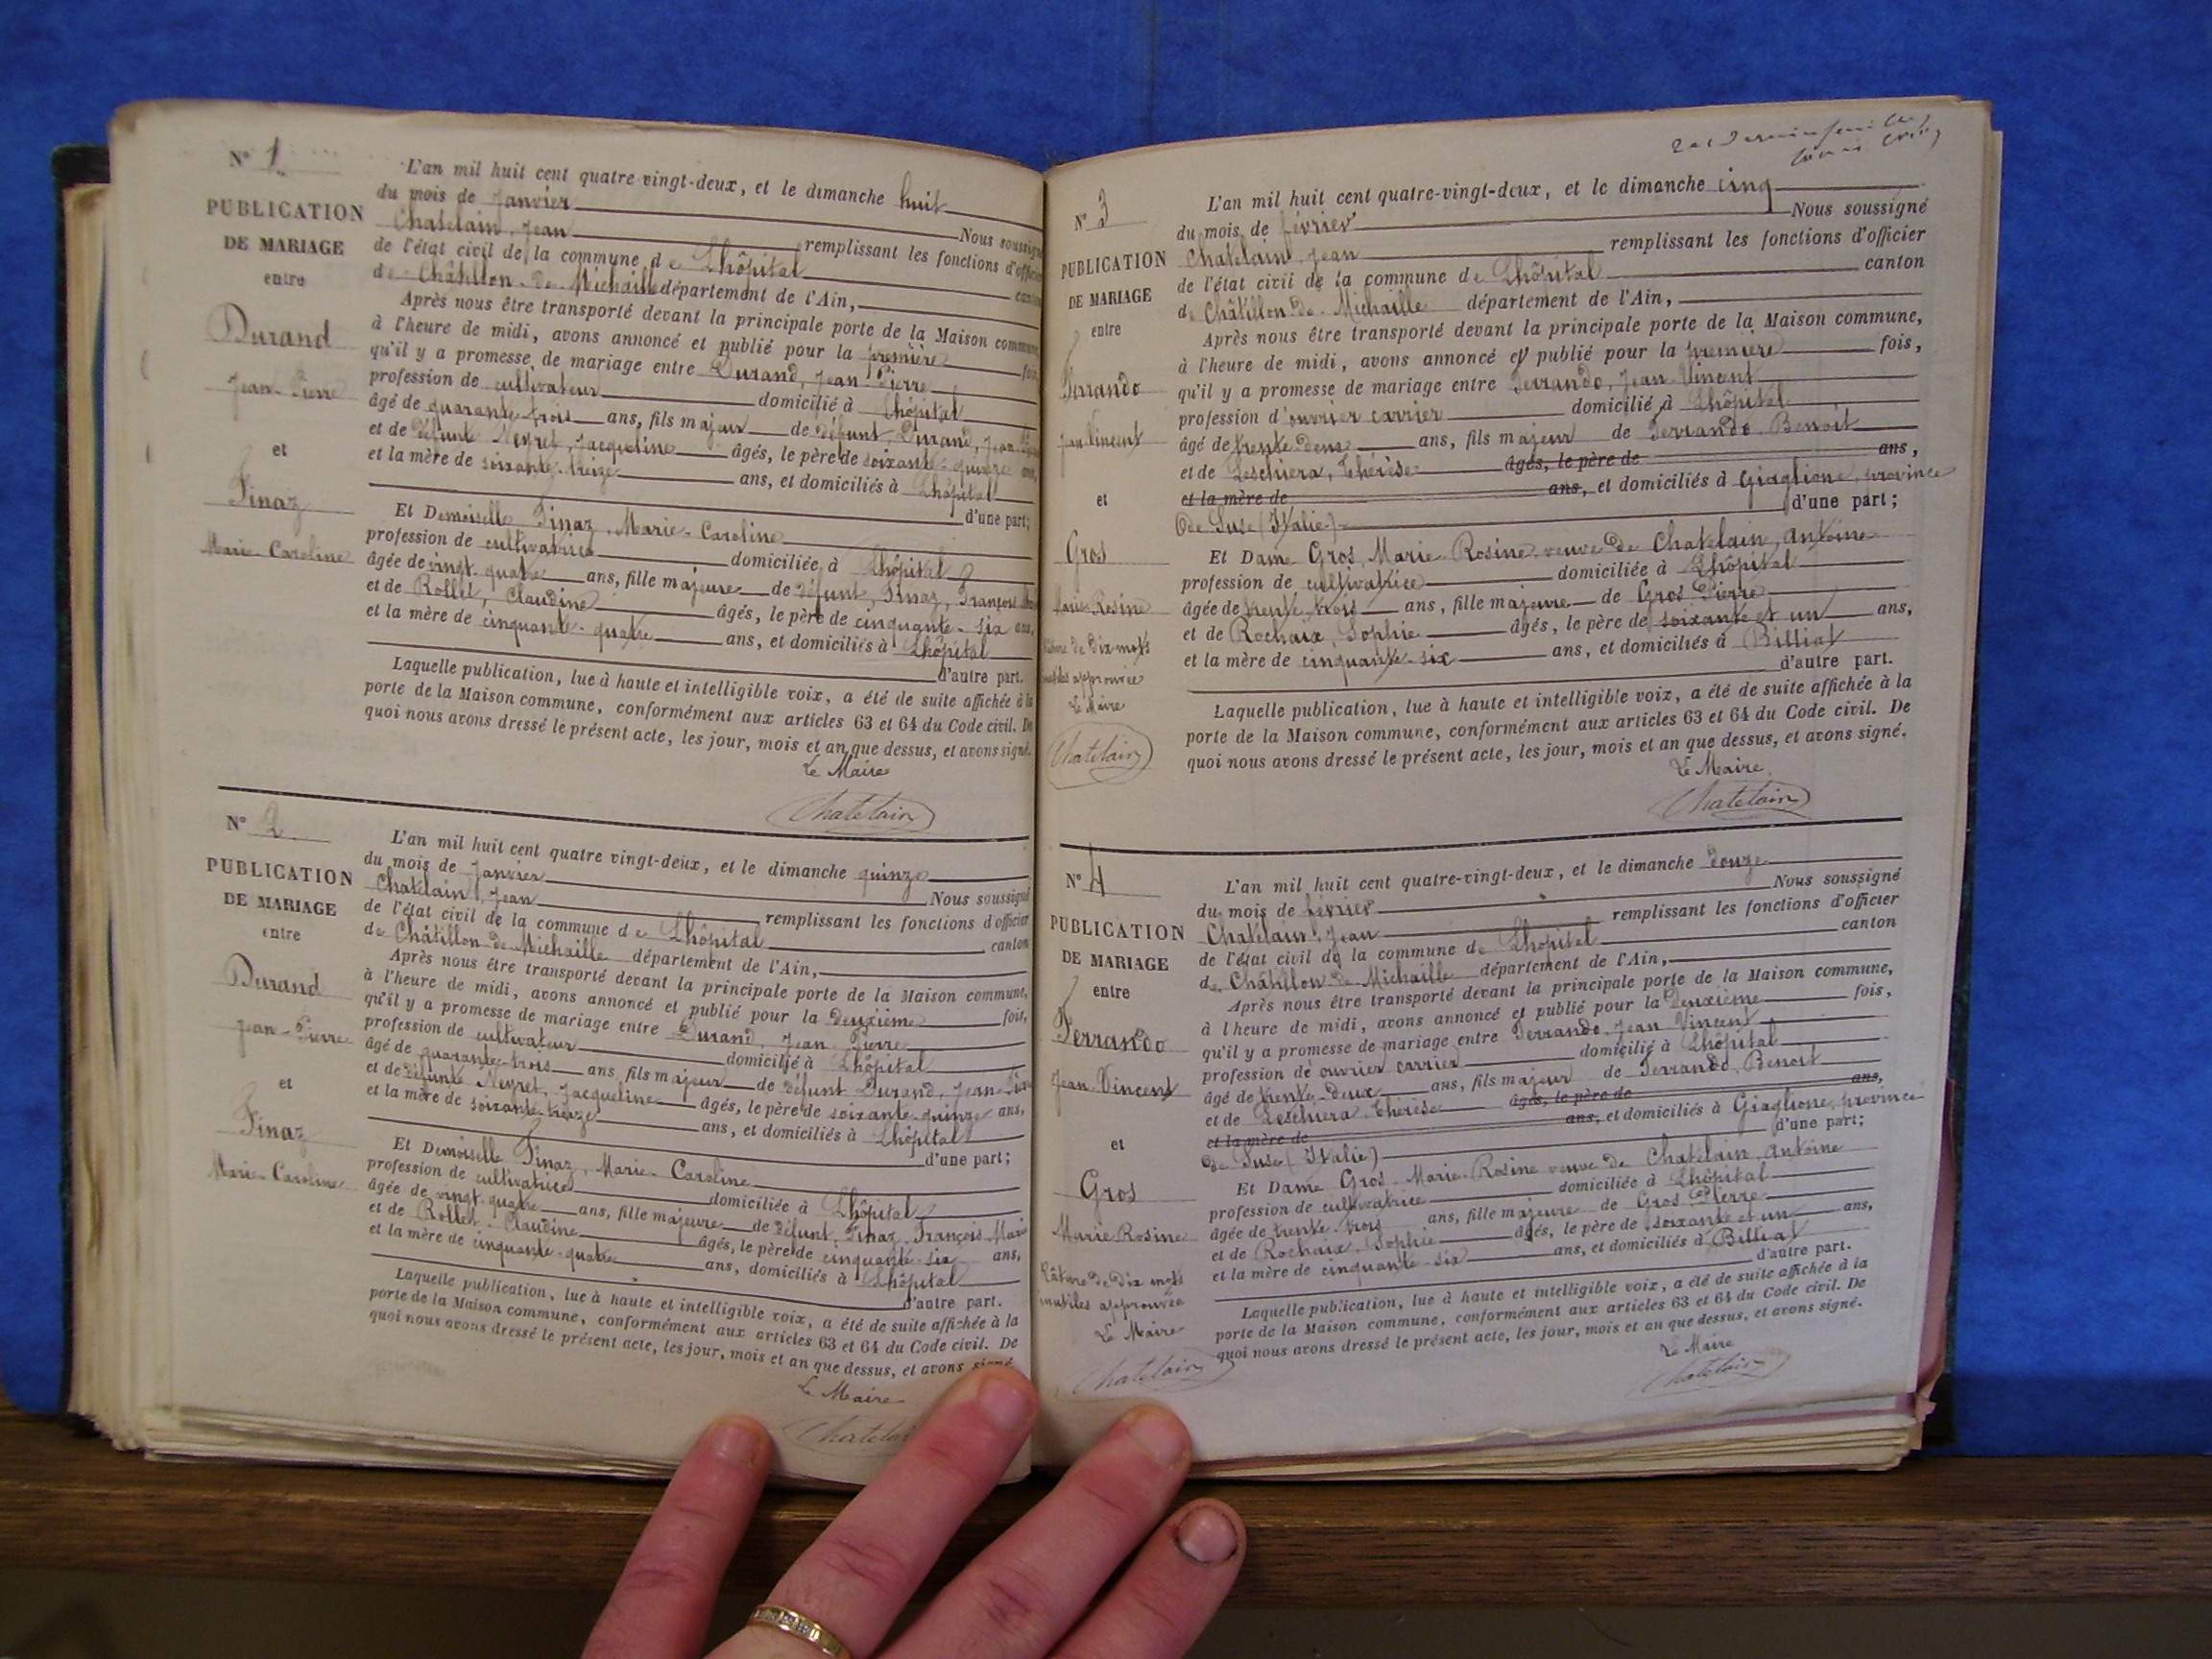 N° 1
PUBLICATION
DE MARIAGE
entre
Durand
Jean-Pierre
et
Finaz
Marie-Caroline
L'an mil huit cent quatre-vingt-deux, et le dimanche huit
du mois de Janvier
Nous soussigné
Chatelain, Jean remplissant les fonctions d'officier
de l'état civil de la commune de Lhôpital canton
de Châtillon-de-Michaille département de l'Ain,
Après nous être transporté devant la principale porte de la Maison commune,
à l'heure de midi, avons annoncé et publié pour la première fois,
qu'il y a promesse de mariage entre Durand, Jean-Pierre
profession de cultivateur domicilié à Lhôpital
âgé de quarante-trois ans, fils majeur de défunt Durand, Jean
et de défunte Neyret, Jacqueline âgés, le père de soixante-quinze ans,
et la mère de soixante-treize ans, et domiciliés à Lhôpital
d'une part;
Et Demoiselle Finaz, Marie-Caroline
profession de cultivatrice domiciliée à Lhôpital
âgée de vingt-quatre ans, fille majeure de défunt, Finaz, François
et de Rollet, Claudine âgés, le père de cinquante-six ans,
et la mère de cinquante-quatre ans, et domiciliés à Lhôpital
d'autre part.
Laquelle publication, lue à haute et intelligible voix, a été de suite affichée à la
porte de la Maison commune, conformément aux articles 63 et 64 du Code civil. De
quoi nous avons dressé le présent acte, les jour, mois et an que dessus, et avons signé.
Le Maire
Chatelain
N° 2
PUBLICATION
DE MARIAGE
entre
Durand
Jean-Pierre
et
Finaz
Marie-Caroline
L'an mil huit cent quatre vingt-deux, et le dimanche quinze
du mois de Janvier
Nous soussigné
Chatelain, Jean remplissant les fonctions d'officier
de l'état civil de la commune de Lhôpital canton
de Châtillon de Michaille département de l'Ain,
Après nous être transporté devant la principale porte de la Maison commune,
à l'heure de midi, avons annoncé et publié pour la deuxième fois,
qu'il y a promesse de mariage entre Durand, Jean-Pierre
profession de cultivateur domicilié à Lhôpital
âgé de quarante-trois ans, fils majeur de défunt Durand, Jean-
et de défunte Neyret, Jacqueline âgés, le père de soixante-quinze ans,
et la mère de soixante-treize ans, et domiciliés à Lhôpital
d'une part;
Et Demoiselle Finaz, Marie-Caroline
profession de cultivatrice domiciliée à Lhôpital
âgée de vingt-quatre ans, fille majeure de défunt, Finaz, François Marie
et de Rollet, Claudine âgés, le père de cinquante-six ans,
et la mère de cinquante-quatre ans, domiciliés à Lhôpital
d'autre part.
Laquelle publication, lue à haute et intelligible voix, a été de suite affichée à la
porte de la Maison commune, conformément aux articles 63 et 64 du Code civil. De
quoi nous avons dressé le présent acte, les jour, mois et an que dessus, et avons signé
Le Maire
Chatelain
N° 3
PUBLICATION
DE MARIAGE
entre
Ferrando
Jean Vincent
et
Gros
Marie-Rosine
Rature de dix mots
inutiles approuvée
Le Maire
Chatelain
L'an mil huit cent quatre-vingt-deux, et le dimanche cinq
du mois de février
Nous soussigné
Chatelain, Jean remplissant les fonctions d'officier
de l'état civil de la commune de Lhôpital canton
de Châtillon-de-Michaille département de l'Ain,
Après nous être transporté devant la principale porte de la Maison commune,
à l'heure de midi, avons annoncé et publié pour la première fois,
qu'il y a promesse de mariage entre Ferrando, Jean-Vincent
profession d'ouvrier carrier domicilié à Lhôpital
âgé de trente-deux ans, fils majeur de Ferrando Benoit
et de Leschiera, Thérèse âgés, le père de ans,
et la mère de ans, et domiciliés à Giaglione, province
de Suse (Italie)
d'une part;
Et Dame Gros, Marie-Rosine veuve de Chatelain, Antoine
profession de cultivatrice domiciliée à Lhôpital
âgée de trente-trois ans, fille majeure de Gros Pierre
et de Rochaix, Sophie âgés, le père de soixante et un ans,
et la mère de cinquante-six ans, et domiciliés à Billiat
d'autre part.
Laquelle publication, lue à haute et intelligible voix, a été de suite affichée à la
porte de la Maison commune, conformément aux articles 63 et 64 du Code civil. De
quoi nous avons dressé le présent acte, les jour, mois et an que dessus, et avons signé.
Le Maire
Chatelain
N° 4
PUBLICATION
DE MARIAGE
entre
Ferrando
Jean-Vincent
et
Gros
Marie Rosine
Rature de dix mots
inutiles approuvée
Le Maire
Chatelain
L'an mil huit cent quatre-vingt-deux, et le dimanche douze
du mois de février
Nous soussigné
Chatelain, Jean remplissant les fonctions d'officier
de l'état civil de la commune de Lhôpital canton
de Châtillon-de-Michaille département de l'Ain,
Après nous être transporté devant la principale porte de la Maison commune,
à l'heure de midi, avons annoncé et publié pour la deuxième fois,
qu'il y a promesse de mariage entre Ferrando, Jean Vincent
profession de ouvrier carrier domicilié à Lhôpital
âgé de trente-deux ans, fils majeur de Ferrando, Benoit
et de Leschiera, Thérèse âgés, le père de ans,
et la mère de ans, et domiciliés à Giaglione, province
de Suse (Italie)
d'une part;
Et Dame Gros Marie-Rosine veuve de Chatelain, Antoine
profession de cultivatrice domiciliée à Lhôpital
âgée de trente-trois ans, fille majeure de Gros Pierre
et de Rochaix, Sophie âgés, le père de soixante et un ans,
et la mère de cinquante-six ans, et domiciliés à Billiat
d'autre part.
Laquelle publication, lue à haute et intelligible voix, a été de suite affichée à la
porte de la Maison commune, conformément aux articles 63 et 64 du Code civil. De
quoi nous avons dressé le présent acte, les jour, mois et an que dessus, et avons signé.
Le Maire
Chatelain